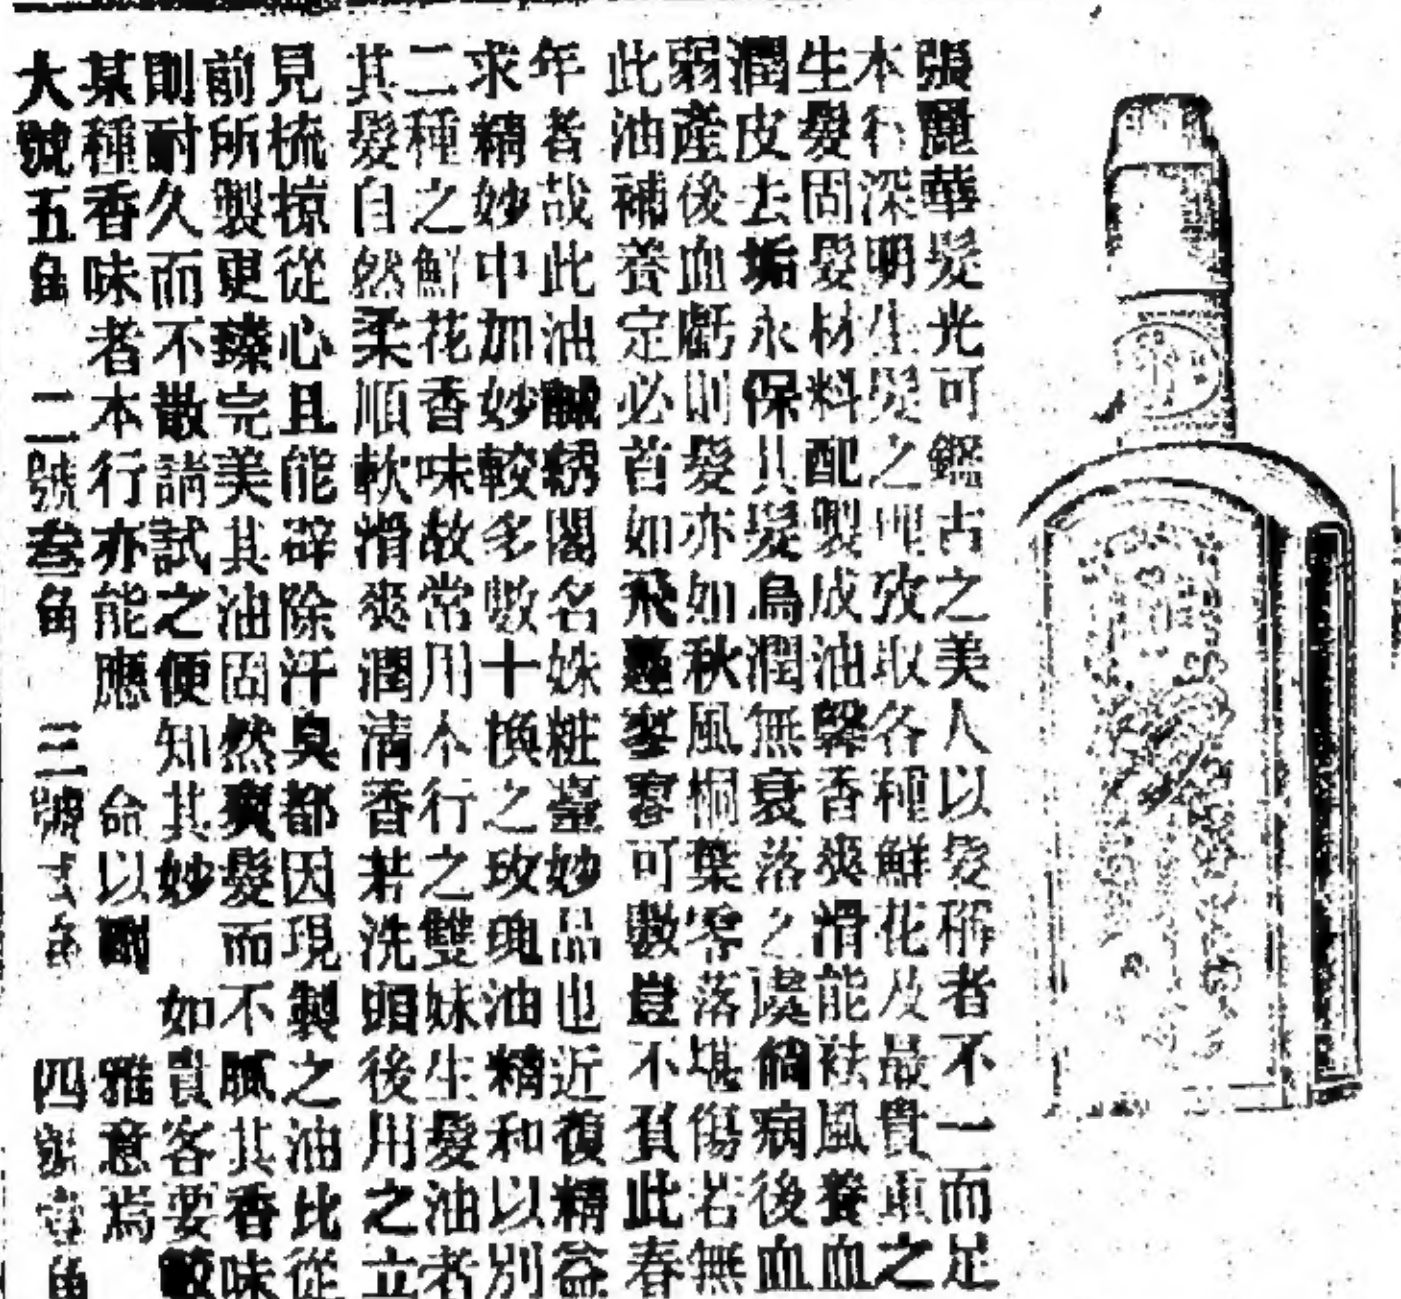 張麗華髮光可鑑古之美人以髮稱者不一而足
本行深明生髮之理攷取各種鮮花及最貴重之
生髮固髮材料配製成油馨香爽滑能袪風養血
潤皮去垢永保其髮烏潤無衰落之虞倘病後血
弱產後血虧則髮亦如秋風桐葉零落堪傷若無
此油補養定必首如飛蓬寥寥可數豈不負此春
年者哉此油誠綉閣名姝粧臺妙品也近復精益
求精妙中加妙較多數十換之玫瑰油精和以別
二種之鮮花香味故常用本行之雙妹生髮油者
其髮自然柔順軟滑爽潤清香若洗頭後用之立
見梳掠從心且能辟除汗臭都因現製之油比從
前所製更臻完美其油固然爽髮而不膩其香味
則耐久而不散請試之便知其妙 如貴客要
某種香味者本行亦能應 命以 雅意焉
大號五角 二號叁角 三號弍角 四號壹角